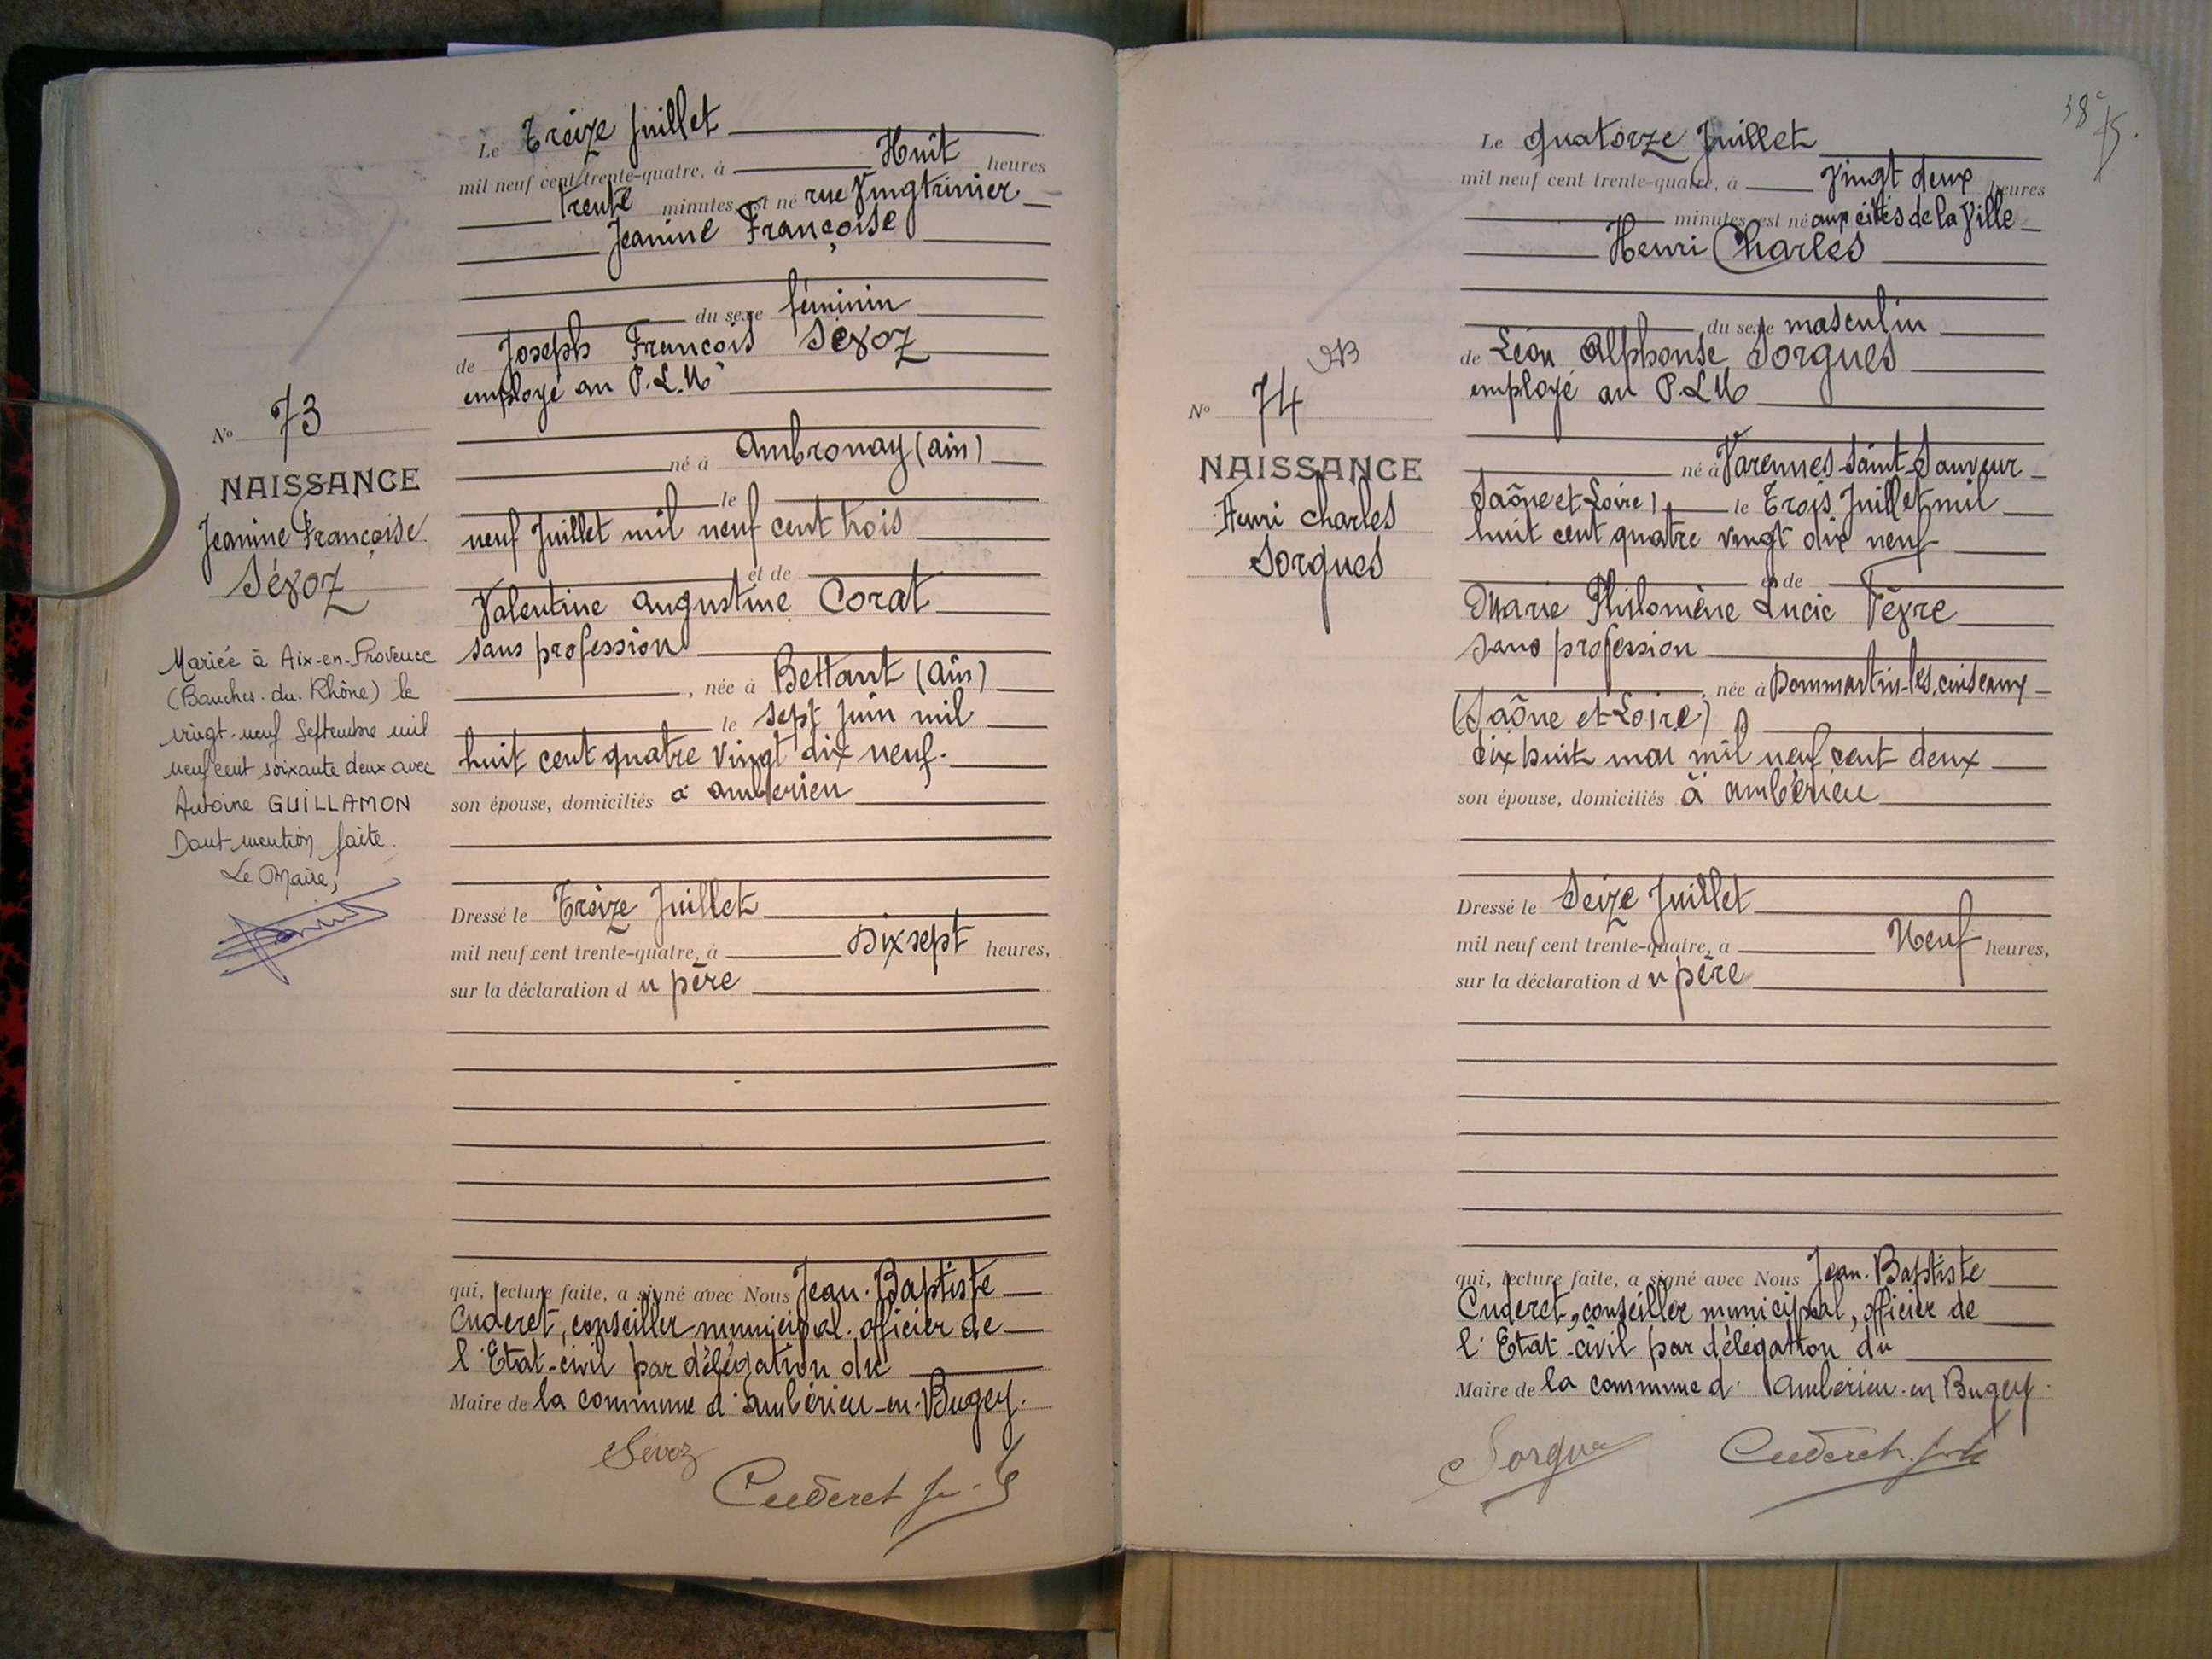 Le Treize Juillet
mil neuf cent trente-quatre, à Huit heures
Trente minutes est né rue Vingtrinier
Jeanine Françoise
du sexe féminin
de Joseph François Sévoz
employé au P.L.M
né à Ambronay (ain)
le
neuf Juillet mil neuf cent trois
et de
Valentine Augustine Corat
sans profession
, née à Bettant (Ain)
le sept juin mil
huit cent quatre vingt dix neuf.
son épouse, domiciliés à ambérieu
Dressé le Treize Juillet
mil neuf cent trente-quatre, à Dix sept heures,
sur la déclaration du père
qui, lecture faite, a signé avec Nous Jean-Baptiste
Cuderet, conseiller municipal, officier de
l'Etat-civil par délégation du
Maire de la commune d'ambérieu-en-Bugey.
Sévoz
Cuderet
No 73
NAISSANCE
Jeanine Françoise
Sévoz
Mariée à Aix-en-Provence
(Bouches-du-Rhône) le
vingt-neuf Septembre mil
neuf cent soixante deux avec
Antoine GUILLAMON
Dont mention faite.
Le Maire,
38e
Le Quatorze Juillet
mil neuf cent trente-quatre, à Vingt deux heures
minutes est né aux cités de la Ville
Henri Charles
du sexe masculin
de Léon Alphonse Sorgues
employé au P.L.M
né à Varennes-Saint-Sauveur
(Saône et Loire) le Trois Juillet mil
huit cent quatre vingt dix neuf
et de
Marie Philomène Lucie Fèvre
sans profession
, née à Dommartin-les-cuiseaux
(Saône et Loire)
dix huit mai mil neuf cent deux
son épouse, domiciliés à ambérieu
Dressé le Seize Juillet
mil neuf cent trente-quatre, à Neuf heures,
sur la déclaration du père
qui, lecture faite, a signé avec Nous Jean-Baptiste
Cuderet, conseiller municipal, officier de
l'Etat-civil par délégation du
Maire de la commune d'ambérieu-en Bugey.
Sorgues
Cuderet
No 74
NAISSANCE
Henri Charles
Sorgues